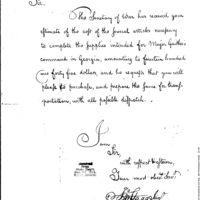 Sir,
The Secretary of War has received your
estimate of the cost of the several articles necessary
to complete the supplies intended for Major Gaither's
command in Georgia, amounting to fourteen hundred
and forty five dollars, and he requests that you will
please to purchase, and prepare the same for transp-
ortation, with all possible dispatch.
I am
Sir,
with respect & esteem,
Your most obed. Serv.